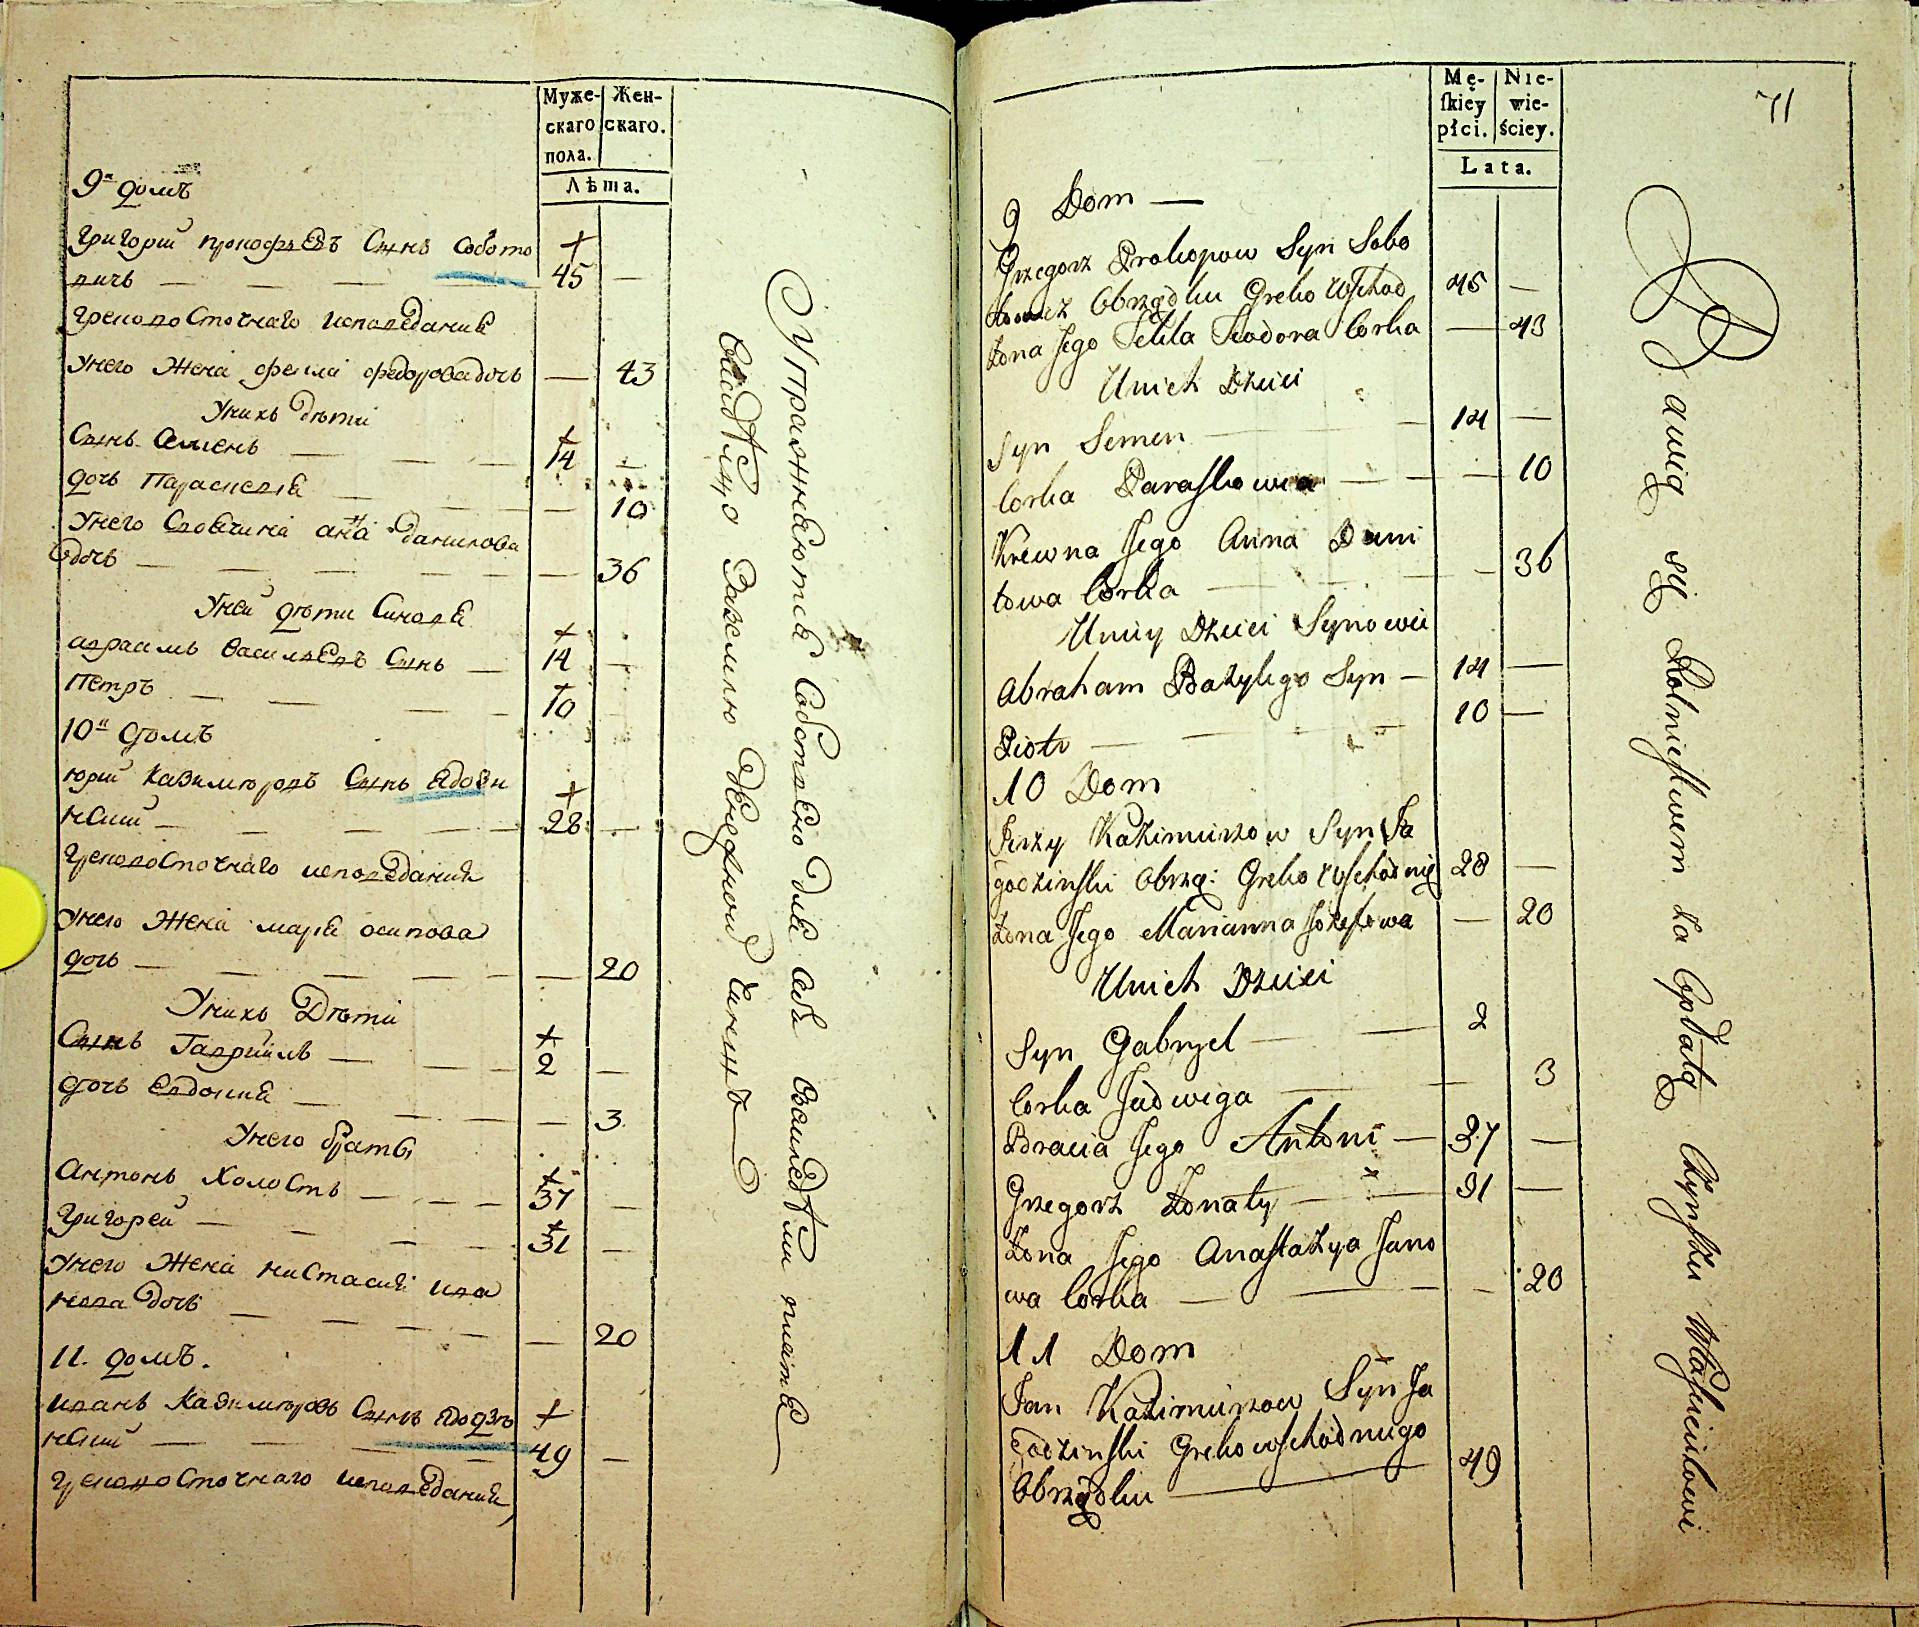 Муже-
скаго
пола.
Жен-
скаго.
Лѣта.
9й домъ
Григорий прокофьевъ Сынъ Собото
вичь — — — — 45 —
грековосточнаго исповедания
Унего Жена фекла федоровадочь — 43
Унихъ дѣти
Сынъ Семенъ — — — 14 —
дочь Параскевия — — — — 10
Унего Своячина анна данилова
дочь — — — — — — 36
Уней дѣти Синовя
авраамъ васильевъ Сынъ — 14 —
Петръ — — — — 10 —
10й домъ
юрий Казимировъ Сынъ Ядози
нский — — — — 28 —
грековосточнаго исповедания
Унего Жена маря осипова
дочь — — — — — — 20
Унихъ Дѣти
Сынъ Гавриилъ — — — 2 —
дочь Евдокия — — — — 3
Унего братья
Антонъ Холостъ — — — 37 —
Григорей — — — — 31 —
Унего Жена настасия ива
нова дочь — — — — — 20
11. домъ.
иванъ Казимировъ Сынъ Ядодзи
нский — — — — 49 —
грековосточнаго исповедания
Упражняются Собствено для себя взошедшми платя
владелцу Заземлю Денежной Чиншъ
Mę-
skiey
płci.
Nie-
wie-
ściey.
Lata.
71
9 Dom —
Grzegorz Prokopow Syn Sobo
Obrządku Greko Wschod 45 —
żona Jego Tekla Teodora Corka — 43
Unich Dzieci
Syn Semen — — 14 —
Corka Paraskowia — — — 10
Krewna Jego Anna Dani
łowa Corka — — — 36
Uniey Dzieci Synowie
Abraham Bazylego Syn — 14 —
Piotr — — — 10 —
10 Dom
Jerzy Kazimierzow Syn Ja
godzinski Obrzą: Greko Wschodnię 28 —
żona Jego Marianna Jozefowa — 20
Unich Dzieci
Syn Gabryel — — 2
Corka Jadwiga — — 3
Bracia Jego Antoni — 37 —
Grzegorz Żonaty — — 31 —
żona Jego Anastazya Jano
wa Corka — — — 20
11 Dom
Jan Kazimierzow Syn Ja
godzinski Grekowschodniego
Obrządku — 49
Bawią się Rolnictwem za Opłatą Czynszu Właścicielowi